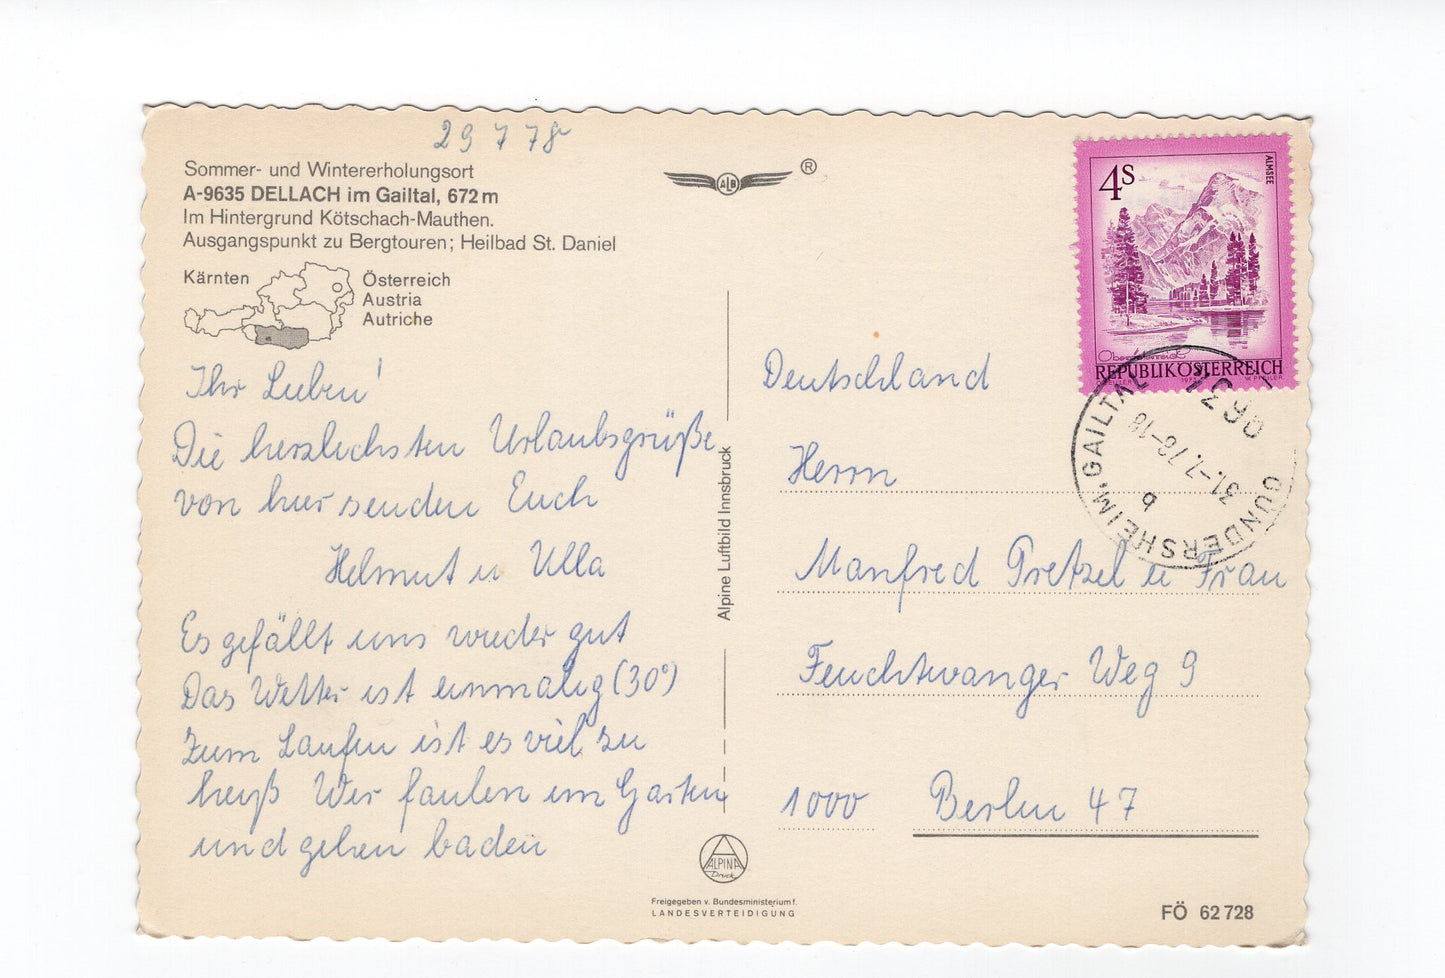 29 7 78
Sommer- und Wintererholungsort
A-9635 DELLACH im Gailtal, 672 m
Im Hintergrund Kötschach-Mauthen.
Ausgangspunkt zu Bergtouren; Heilbad St. Daniel
Kärnten
Österreich
Austria
Autriche
Ihr Lieben!
Die herzlichsten Urlaubsgrüße
von hier senden Euch
Helmut u Ulla
Es gefällt uns wieder gut
Das Wetter ist einmalig (30°)
Zum Laufen ist es viel zu
heiß Wir faulen im Garten
und gehen baden
ALB ®
Alpine Luftbild Innsbruck
ALPINA
Druck
Freigegeben v. Bundesministerium f.
LANDESVERTEIDIGUNG
4S
ALMSEE
Oberösterreich
REPUBLIK ÖSTERREICH
9631
GUNDERSHEIM, GAILTAL
31.-7.78-18
b
Deutschland
Herrn
Manfred Pretzel u Frau
Feuchtwanger Weg 9
1000 Berlin 47
FÖ 62 728